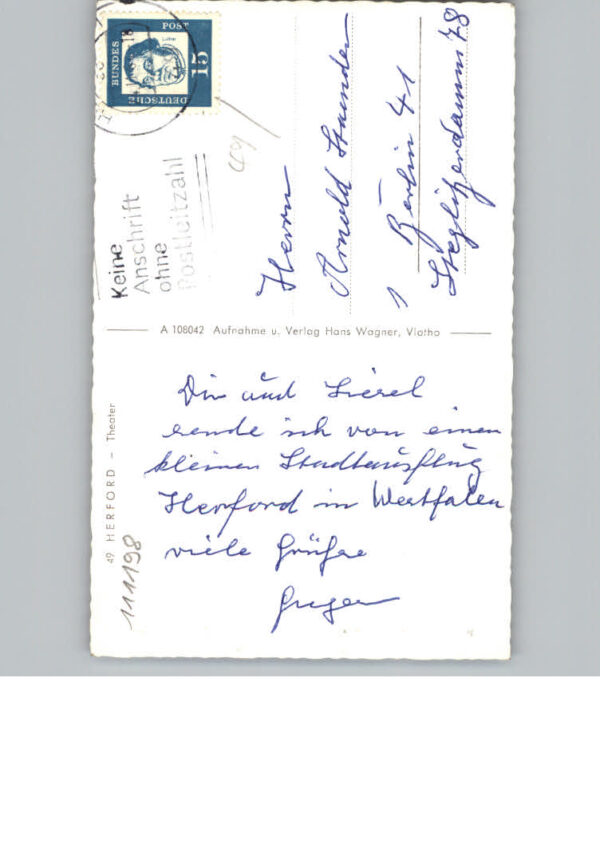 DEUTSCHE BUNDESPOST
15
Keine
Anschrift
ohne
Postleitzahl
Herrn
Arnold
1 Berlin 41
Steglitzerdamm 78
A 108042 Aufnahme u. Verlag Hans Wagner, Vlotho
49 HERFORD – Theater
111198
Dir und Liesel
sende ich von einem
kleinen Stadtausflug
Herford in Westfalen
viele Grüße